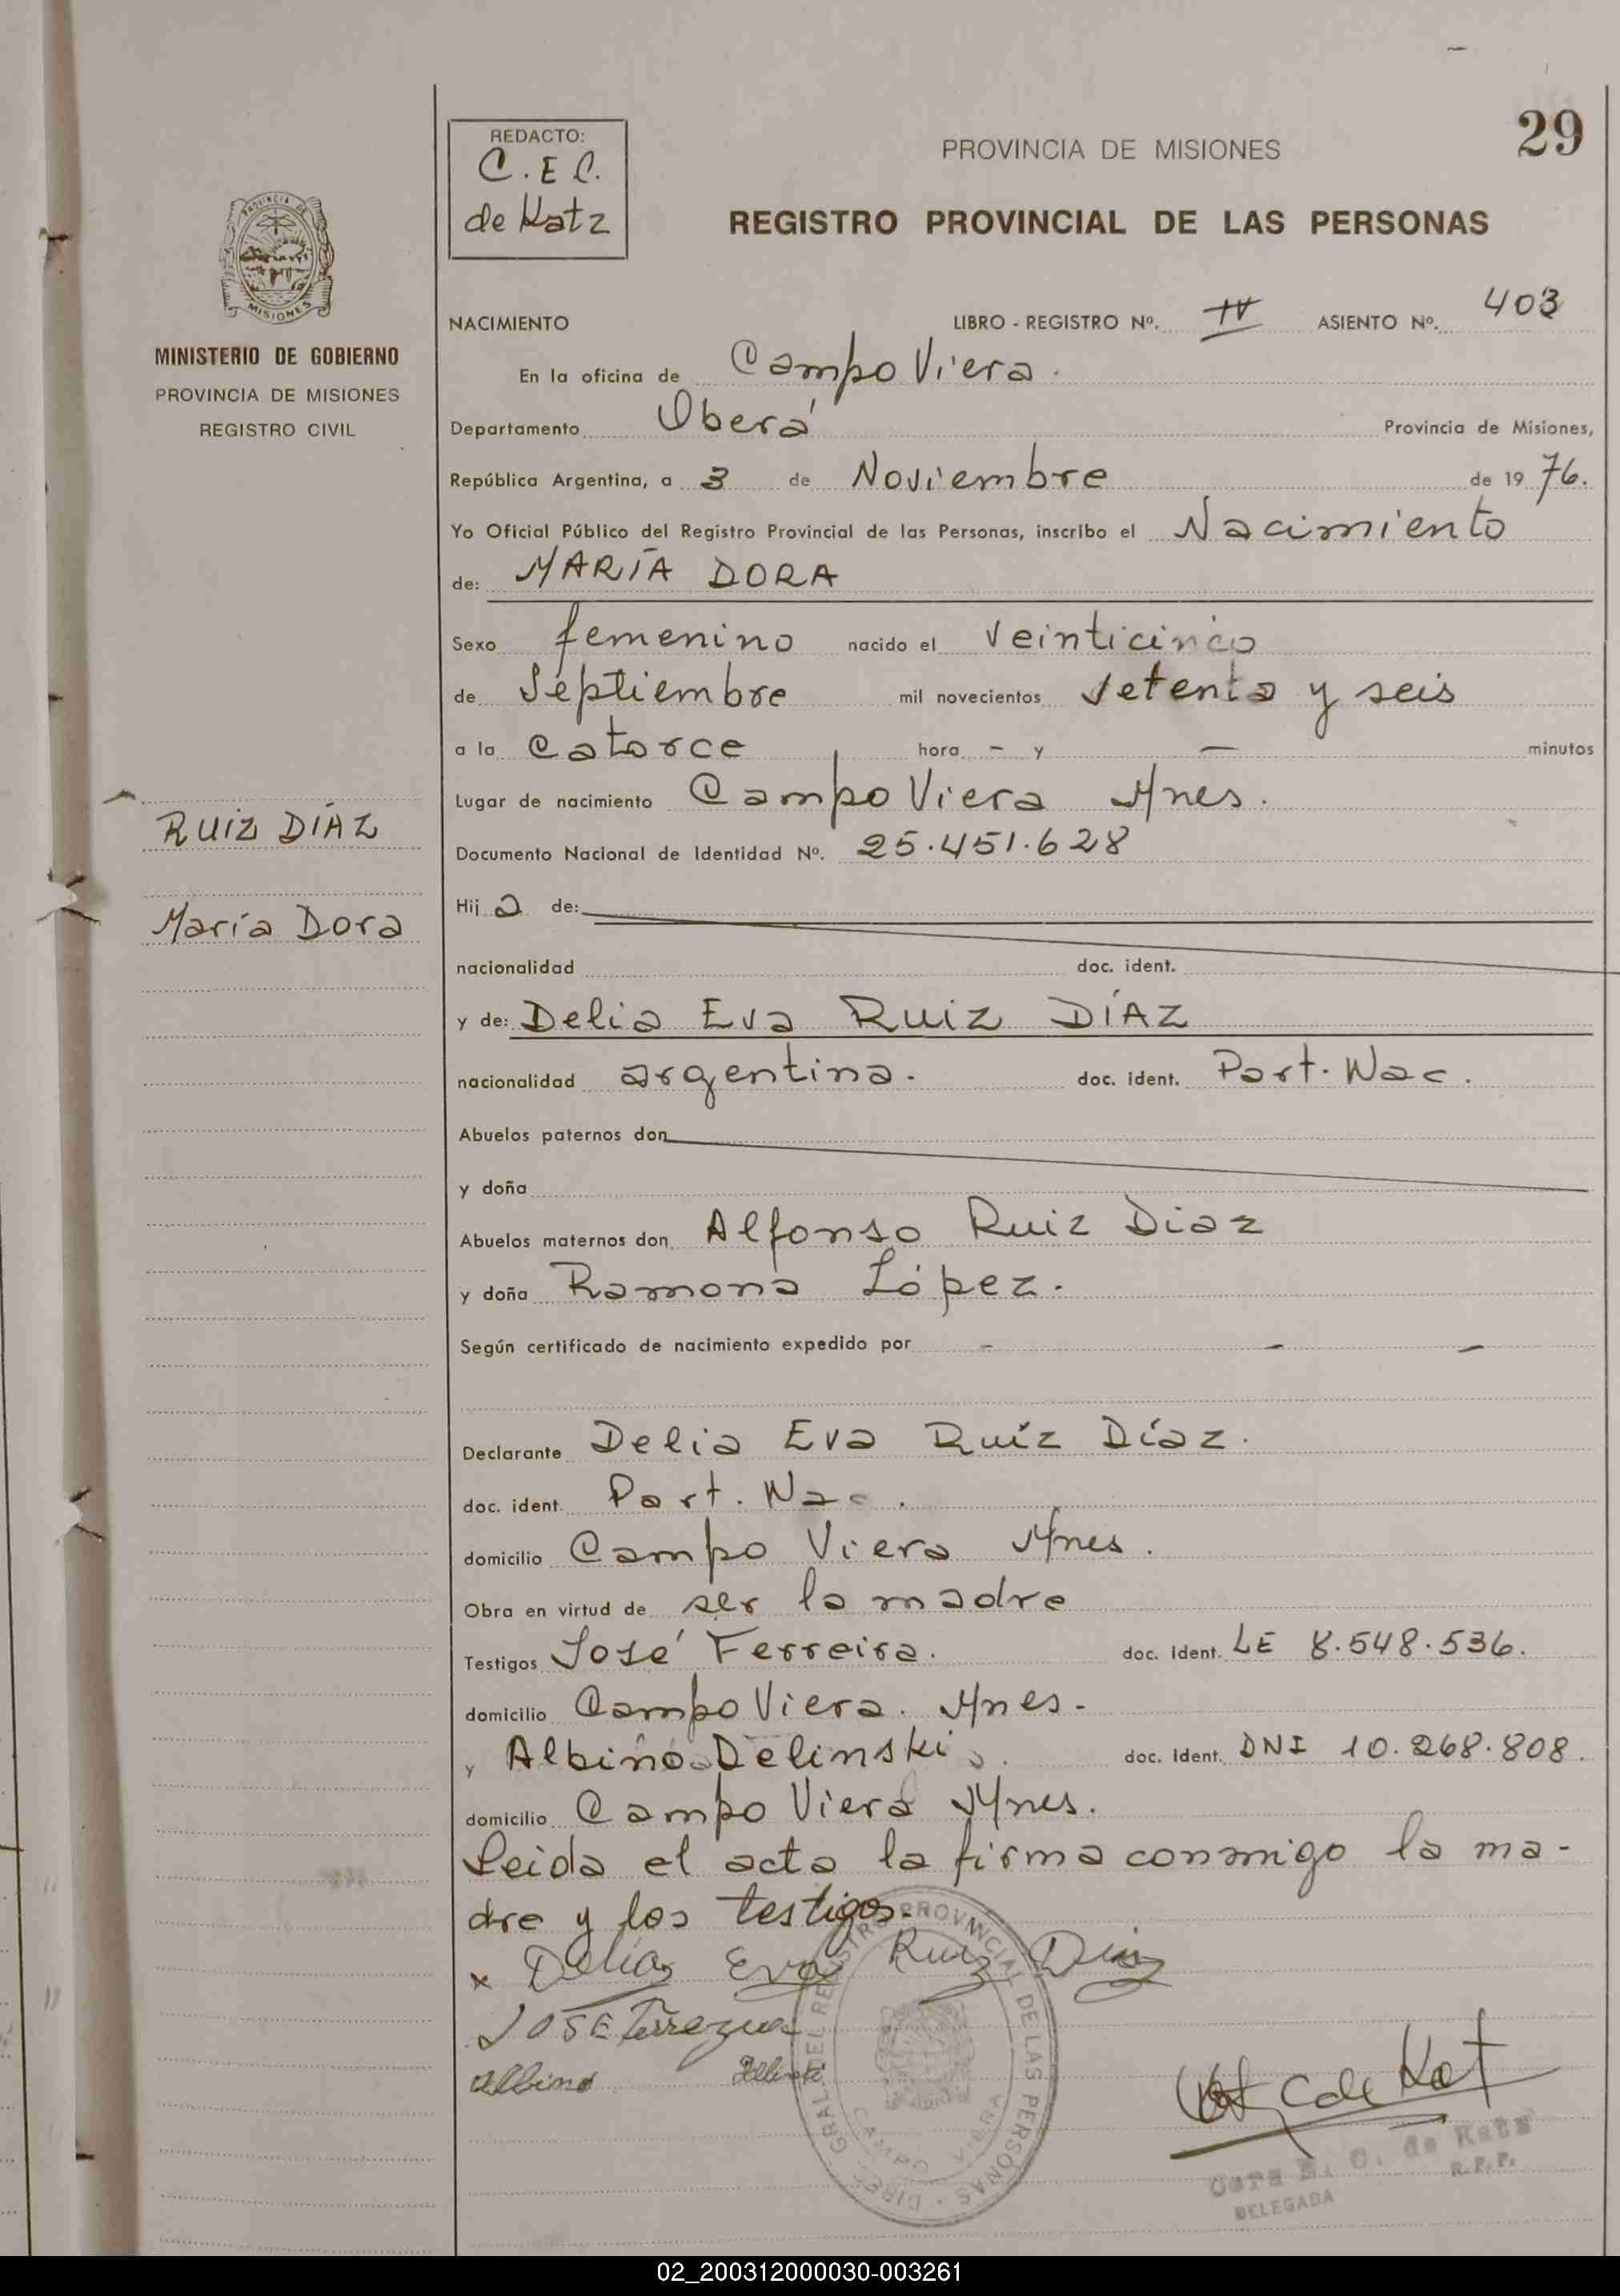 29
REDACTO:
C. E C.
de Katz
PROVINCIA DE MISIONES
REGISTRO PROVINCIAL DE LAS PERSONAS
PROVINCIA DE
MISIONES
MINISTERIO DE GOBIERNO
PROVINCIA DE MISIONES
REGISTRO CIVIL
RUIZ DÍAZ
María Dora
NACIMIENTO LIBRO - REGISTRO Nº. IV ASIENTO Nº. 403
En la oficina de Campo Viera.
Departamento Oberá Provincia de Misiones,
República Argentina, a 3 de Noviembre de 19 76.
Yo Oficial Público del Registro Provincial de las Personas, inscribo el Nacimiento
de: MARÍA DORA
Sexo femenino nacido el veinticinco
de Septiembre mil novecientos setenta y seis
a la catorce hora - y - minutos
Lugar de nacimiento Campo Viera Mnes.
Documento Nacional de Identidad Nº. 25.451.628
Hij a de:
nacionalidad doc. ident.
y de: Delia Eva RUIZ DÍAZ
nacionalidad argentina. doc. ident. Part. Nac.
Abuelos paternos don
y doña
Abuelos maternos don Alfonso Ruiz Diaz
y doña Ramona López.
Según certificado de nacimiento expedido por - - -
Declarante Delia Eva Ruíz Díaz.
doc. ident. Part. Nac.
domicilio Campo Viera Mnes.
Obra en virtud de ser la madre
Testigos José Ferreira. doc. ident. LE 8.548.536.
domicilio Campo Viera. Mnes.
y Albino Delinski. doc. ident. DNI 10.268.808.
domicilio Campo Viera Mnes.
Leida el acta la firma conmigo la ma-
dre y los testigos.
x Delia Eva Ruiz Diaz
JOSE
Albino
DIREC. GRAL DEL REGISTRO PROVINCIAL DE LAS PERSONAS
CAMPO VIERA
C de Kat
Cora E. C. de Katz
DELEGADA R.P.P.
02_200312000030-003261